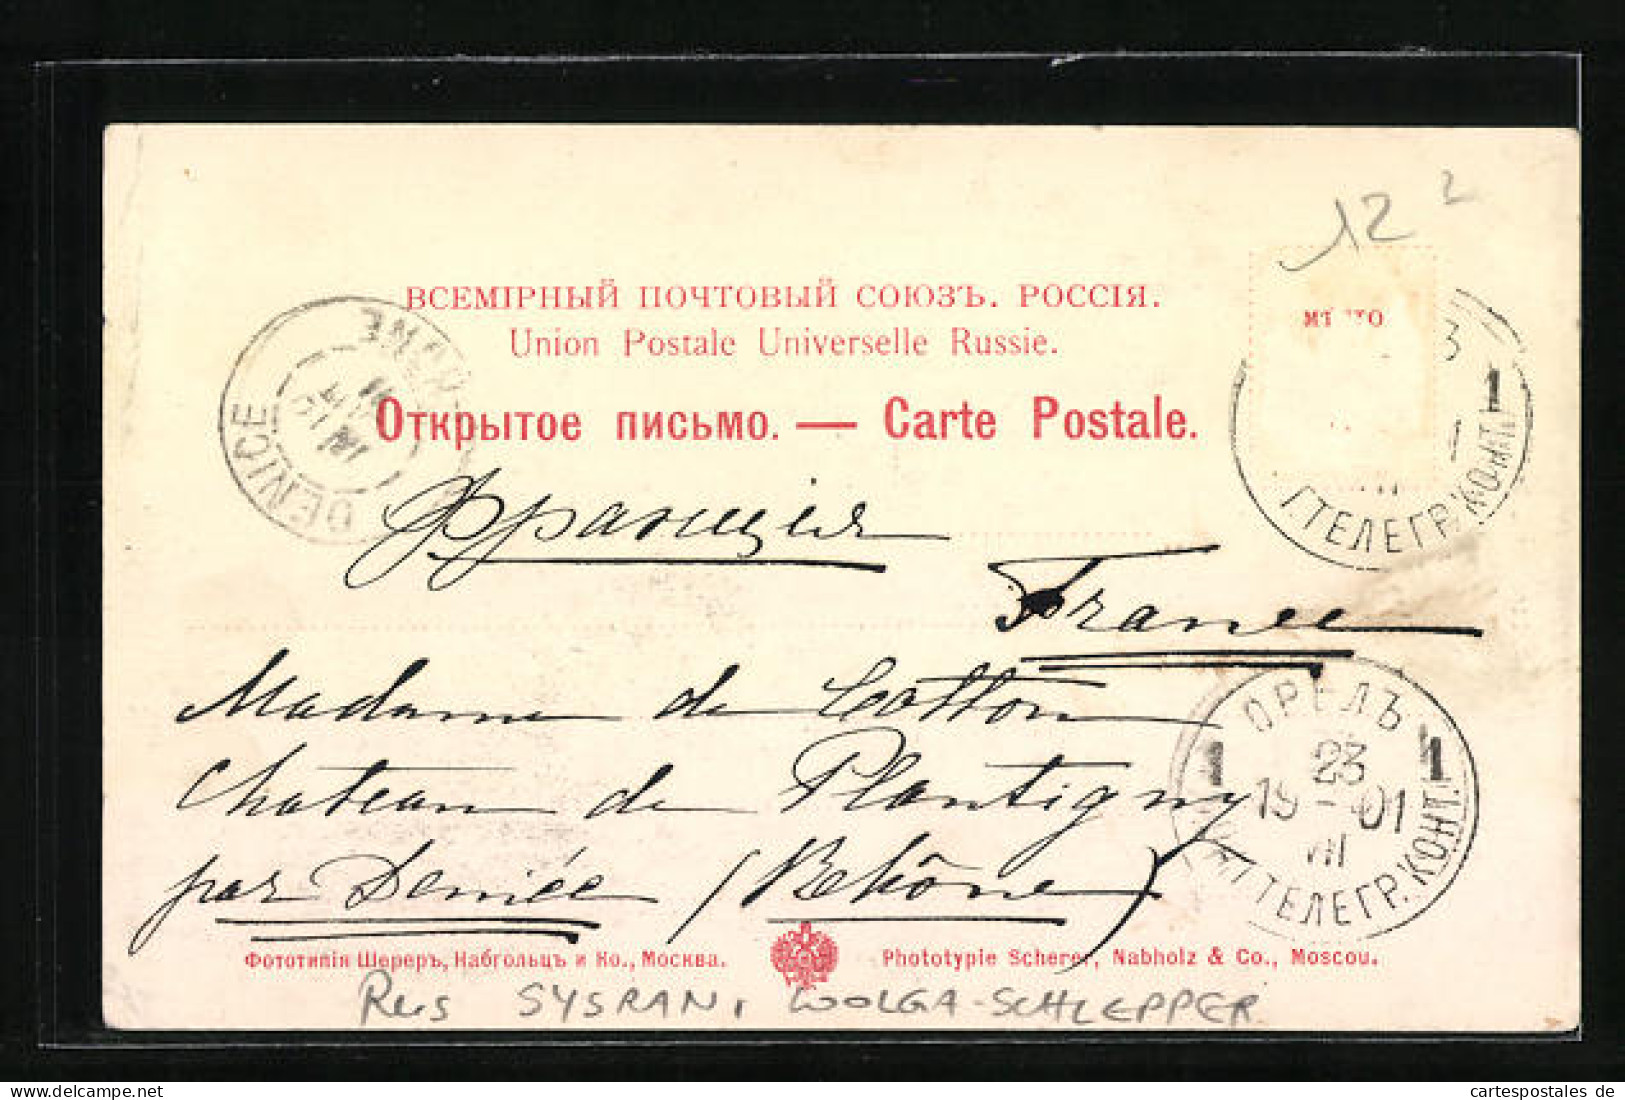 12 2
ВСЕМІРНЫЙ ПОЧТОВЫЙ СОЮЗЪ. РОССІЯ.
Union Postale Universelle Russie.
Открытое письмо. — Carte Postale.
DENICE
RHONE
3
1
ТЕЛЕГР. КОНТ.
Франція
France
Madame de Cotton
Chateau de Plantigny
par Denicé (Rhône)
ОРЕЛЪ
23
19-01
VII
ТЕЛЕГР. КОНТ.
1 1
Фототипія Шереръ, Набгольцъ и Ко., Москва.
Phototypie Scherer, Nabholz & Co., Moscou.
Rus SYSRAN, WOLGA-SCHLEPPER
cartespostales de